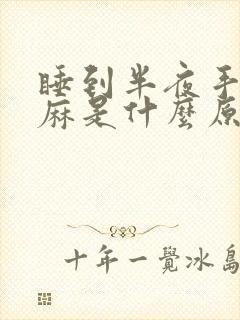 睡到半夜手
麻是什麼原
十年一覺冰島